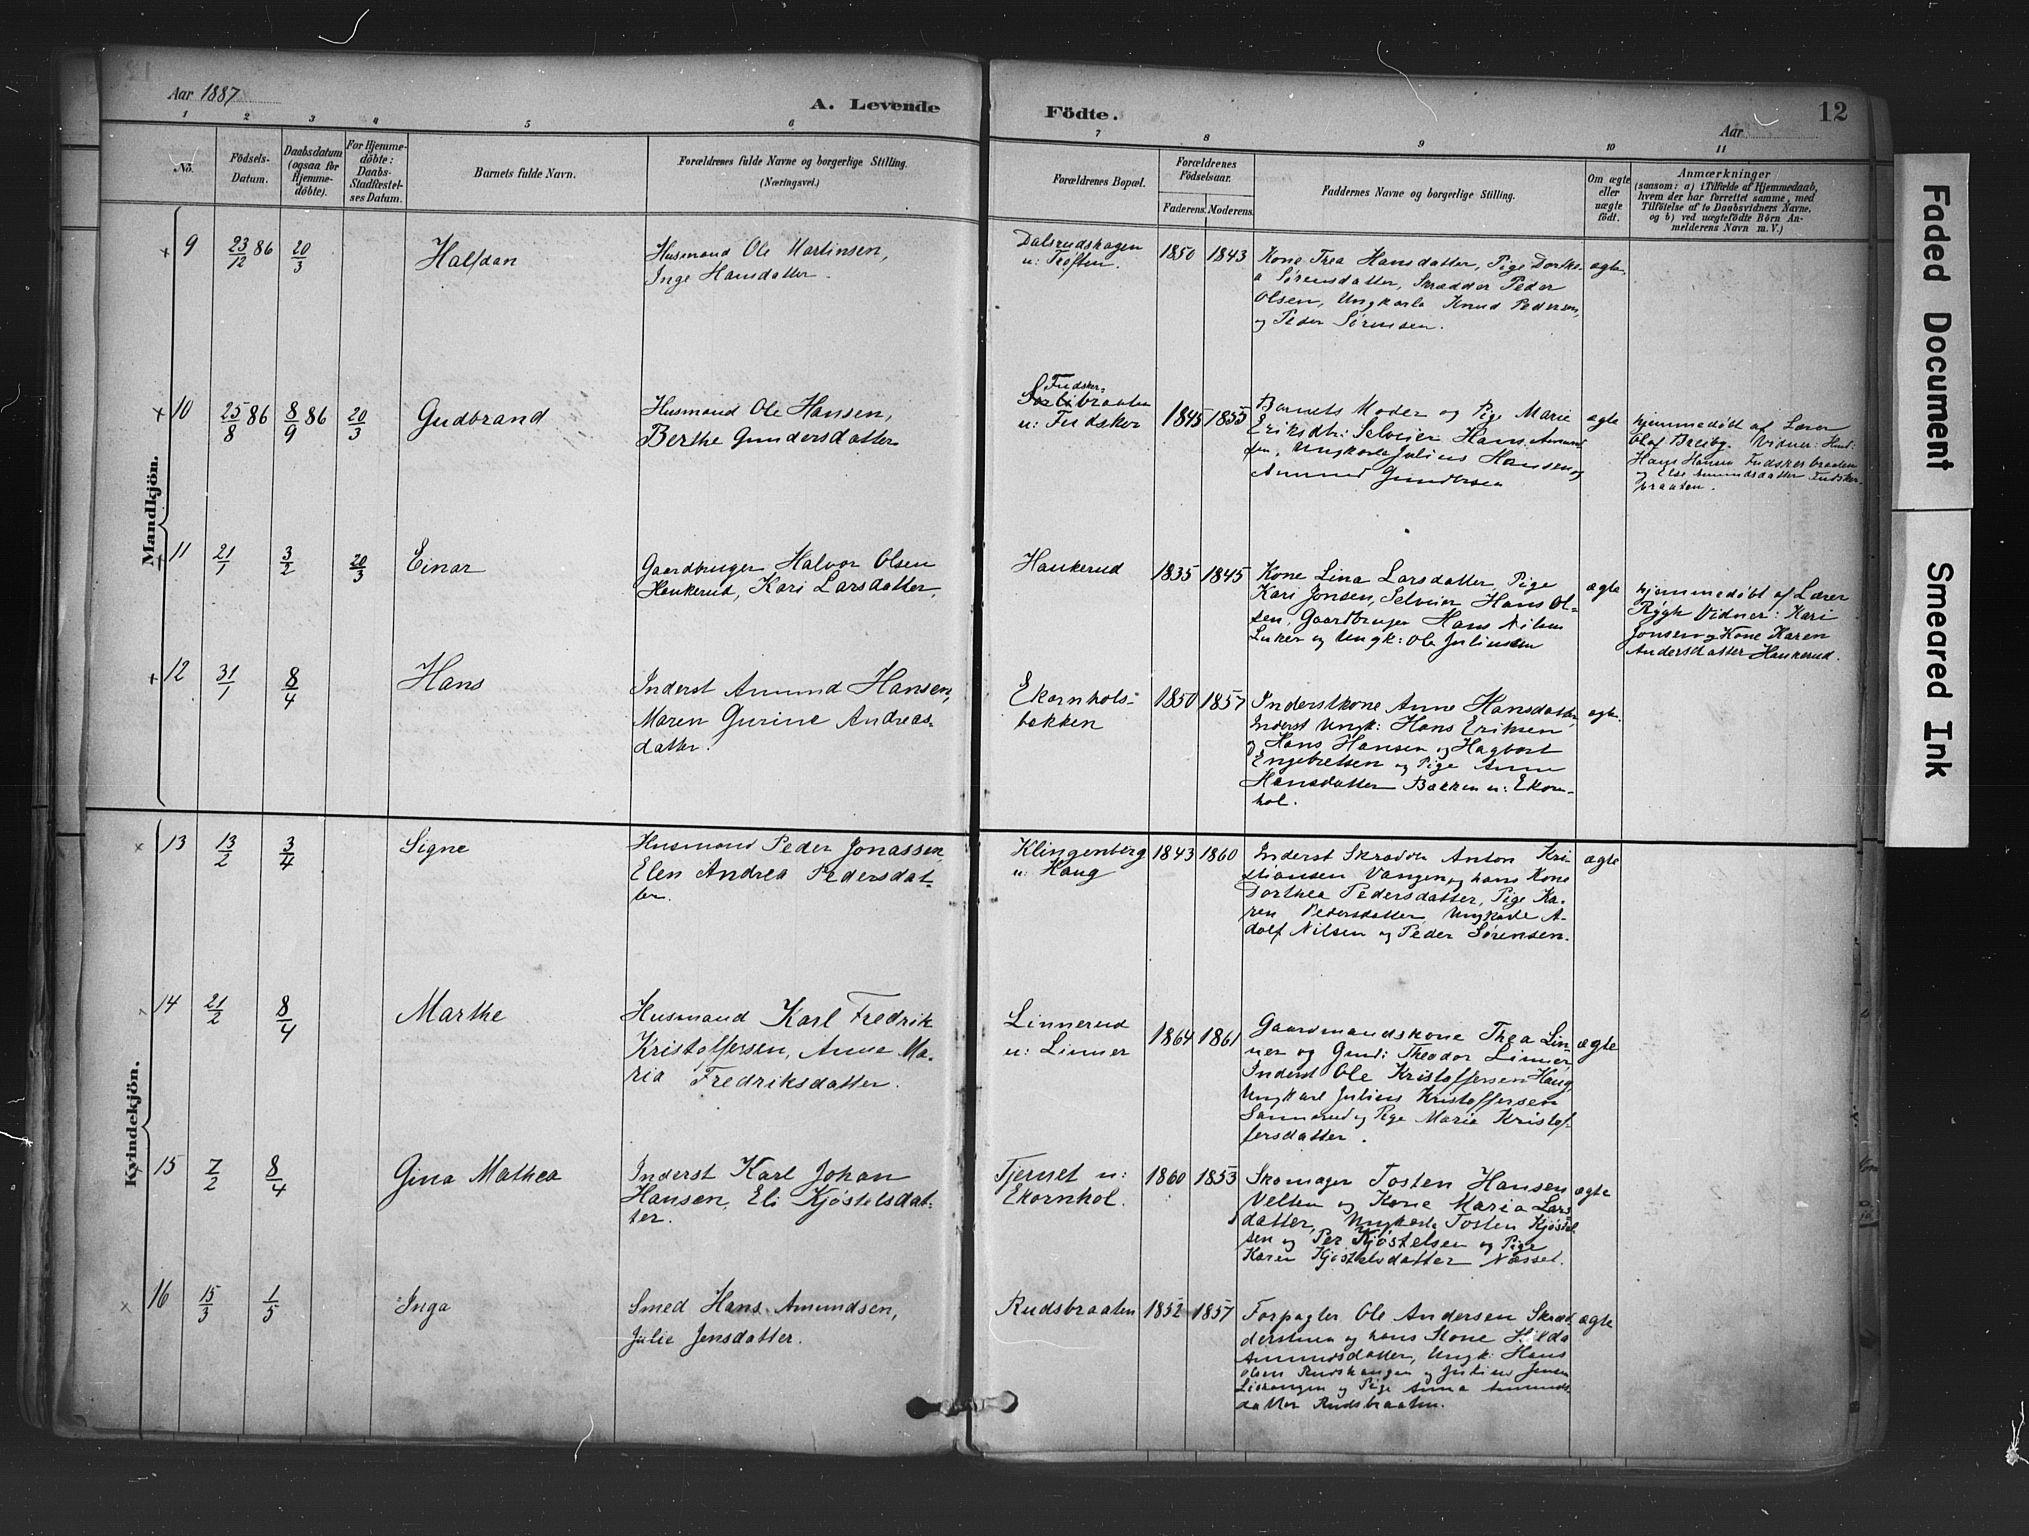 Aar 1887
A. Levende
Födte.
12
Aar
1 2 3 4 5 6 7 8 9 10 11
No.
Födsels-
Datum.
Daabsdatum
(ogsaa for
Hjemme-
döbte).
For Hjemme-
döbte:
Daabs-
Stadfæstel-
ses Datum.
Barnets fulde Navn.
Forældrenes fulde Navne og borgerlige Stilling.
(Næringsvei.)
Forældrenes Bopæl.
Forældrenes
Födselsaar.
Faderens. Moderens.
Faddernes Navne og borgerlige Stilling.
Om ægte
eller
uægte
födt.
Anmærkninger
(saasom: a) i Tilfælde af Hjemmedaab,
hvem der har forrettet samme, med
Tilföielse af to Daabsvidners Navne,
og b) ved uægtefödte Börn An-
melderens Navn m. V.)
Mandkjön.
+ 9 23/12 86 20/3
Halfdan
Husmand Ole Martinsen,
Inge Hansdatter.
Dalsrudhagen
u: Toften.
1850 1843
Kone Thea Hansdatter, Pige Dorthe-
a Sørensdatter, Skrædder Peder
Olsen, Ungkarle Knud Pedersen,
og Peder Sørensen.
ægte
+ 10 25/8 86 8/9 86 20/3
Gudbrand
Husmand Ole Hansen,
Berthe Gundersdatter
Fudsker-
braaten
u: Fudsker
1845 1855
Barnets Moder og Pige Marie
Eriksdtr: Selveier Hans Amund-
sen, Ungkarle Julius Hansen og
Amund Gundersen
ægte
hjemmedøbt af Lærer
Olaf Breiby. Vidner: Husm.
Hans Hansen Fudskerbraaten
og Else Amundsdatter Fudsker-
braaten.
+ 11 21/1 3/2 20/3
Einar
Gaardbruger Halvor Olsen
Haukerud, Kari Larsdatter.
Haukerud
1835 1845
Kone Lina Larsdatter, Pige
Kari Jonsen, Selveier Hans Ol-
sen, Gaardbruger Hans Nilsen
og Ungk: Ole Juliussen
ægte
hjemmedøbt af Lærer
Rygh Vidner: Kari
Jonsen og Kone Karen
Andersdatter Haukerud.
+ 12 31/1 8/4
Hans
Inderst Amund Hansen,
Maren Gurine Andreas-
datter.
Ekornhols-
bakken
1850 1857
Inderstkone Anne Hansdatter,
Inderst Ungk: Hans Eriksen
og Hans Hansen og Hagbart
Engebretsen og Pige Anne
Hansdatter Bakken u: Ekorn-
hol.
ægte.
Kvindekjön.
x 13 13/2 3/4
Signe
Husmand Peder Jonassen
Elen Andrea Pedersdat-
ter.
Klingenberg
u: Haug
1843 1860
Inderst Skrædder Anton Kri-
stiansen Vangen og hans Kone
Dorthea Pedersdatter, Pige Ka-
ren Pedersdatter Ungkarle A-
dolf Nilsen og Peder Sørensen.
ægte
x 14 21/2 8/4
Marthe
Husmand Karl Fredrik
Kristoffersen, Anne Ma-
ria Fredriksdatter.
Linnerud
u: Linner
1864 1861
Gaardmandskone Thea Lin-
ner og Gmd: Theodor Linner,
Inderst Ole Kristoffersen Haug,
Ungkarl Julius Kristoffersen
Sannerud og Pige Maria Kristof-
fersdatter.
ægte
15 7/2 8/4
Gina Mathea
Inderst Karl Johan
Hansen, Eli Kjøstelsdat-
ter.
Tjernet u:
Ekornhol.
1860 1853
Skomager Tosten Hansen
Velten og Kone Maria Lars-
datter, Ungkarle Tosten Kjøstel-
sen og Per Kjøstelsen og Pige
Karen Kjøstelsdatter Næsset.
ægte
x 16 15/3 1/5
Inga
Smed Hans Amundsen,
Julie Jensdatter.
Rudsbraaten
1852 1857
Forpagter Ole Andersen Skræd-
derstuen og hans Kone Hilda
Amundsdatter, Ungk: Hans
Olsen Rudshaugen og Julius Jensen
og Pige Anna Amunds-
datter Rudsbraaten.
ægte
Faded Document
Smeared Ink